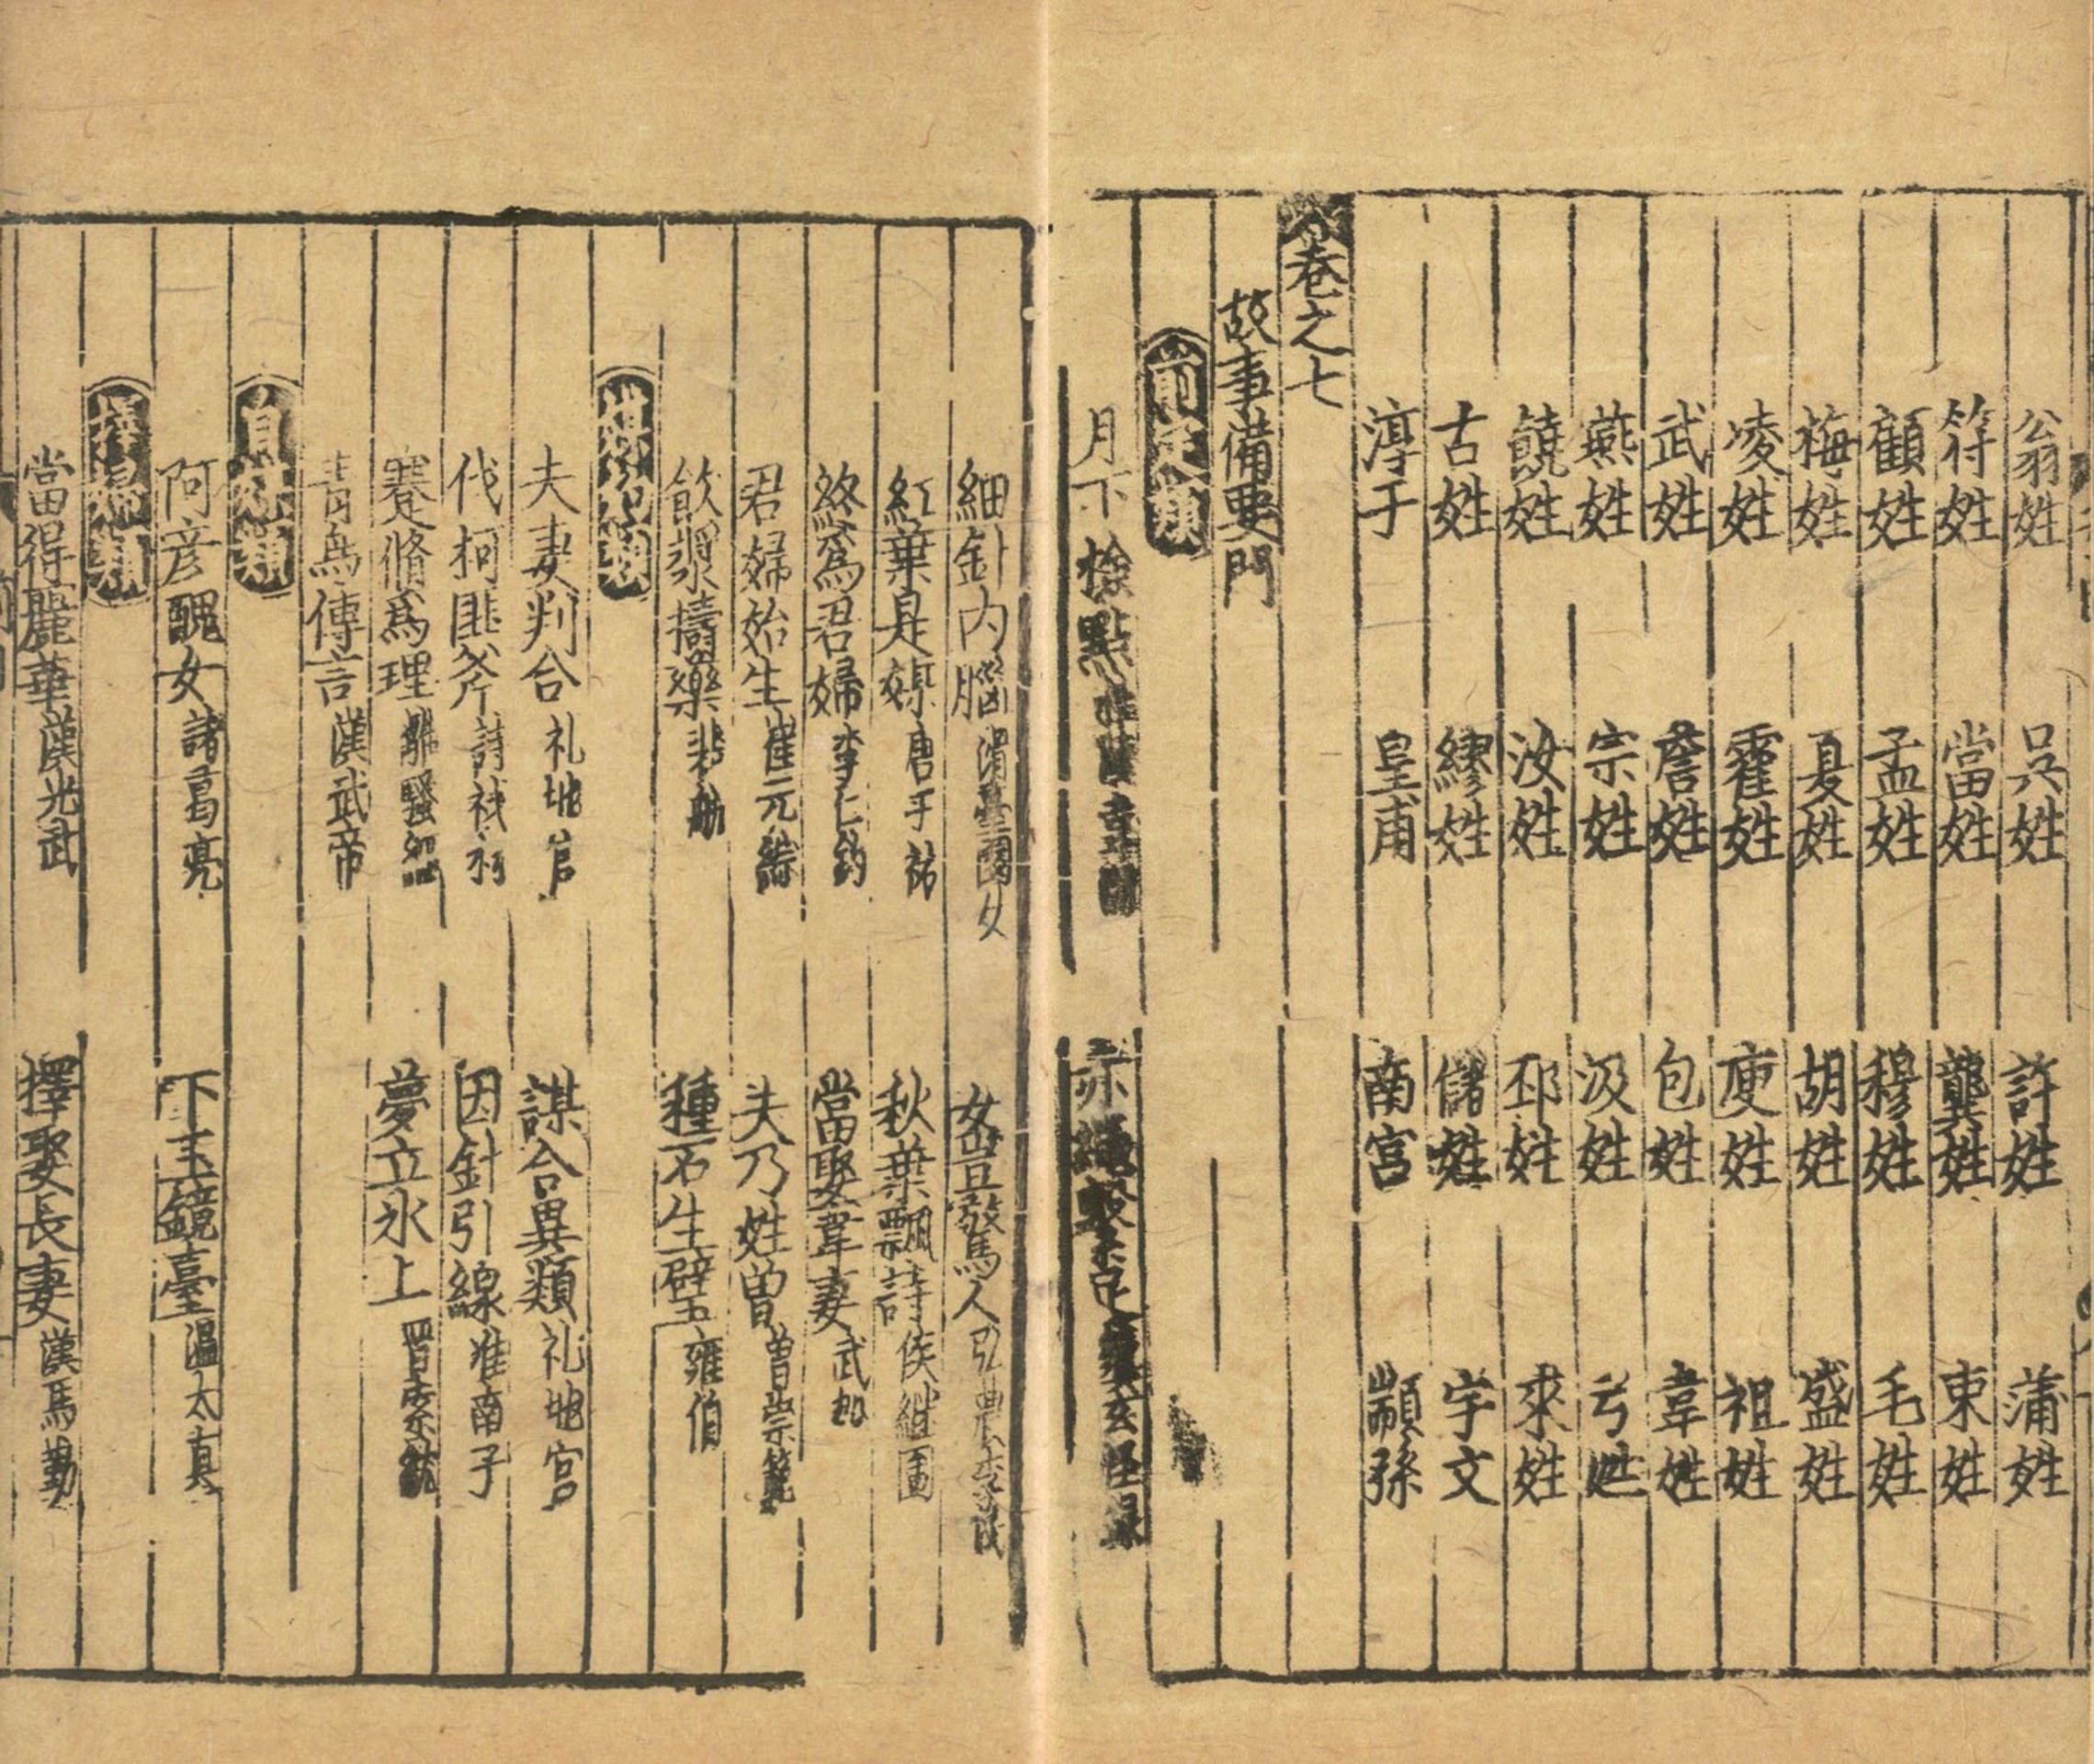 翁姓 吳姓 許姓 蒲姓
符姓 當姓 龔姓 東姓
顧姓 孟姓 穆姓 毛姓
梅姓 夏姓 胡姓 盛姓
凌姓 霍姓 庾姓 祖姓
武姓 詹姓 包姓 韋姓
燕姓 宗姓 汲姓 弓姓
饒姓 汝姓 邳姓 來姓
古姓 繆姓 儲姓 宇文
淳于 皇甫 南宮 顓孫
卷之七
故事備要門
前定類
月下檢點 赤繩繫足 玄怪录
細針内腦 女豈驚人
紅葉是媒 唐于祐 秋葉飄詩 侯繼圖
終爲君婦 李仁鈞 當娶韋妻 武
君婦始生 崔元綜 夫乃姓曽 曽崇範
飲漿擣藥 裴航 種石生璧 雍伯
媒妁類
夫妻判合 礼地官 謀合異類 礼地官
伐柯匪斧 詩伐柯 因針引線 淮南子
蹇脩爲理 離騷 夢立氷上 晋索紞
青鳥傳言 漢武帝
自媒類
阿彦醜女 諸葛亮 下玉鏡臺 温太真
擇婦類
當得麗華 漢光武 擇娶長妻 漢馬勤